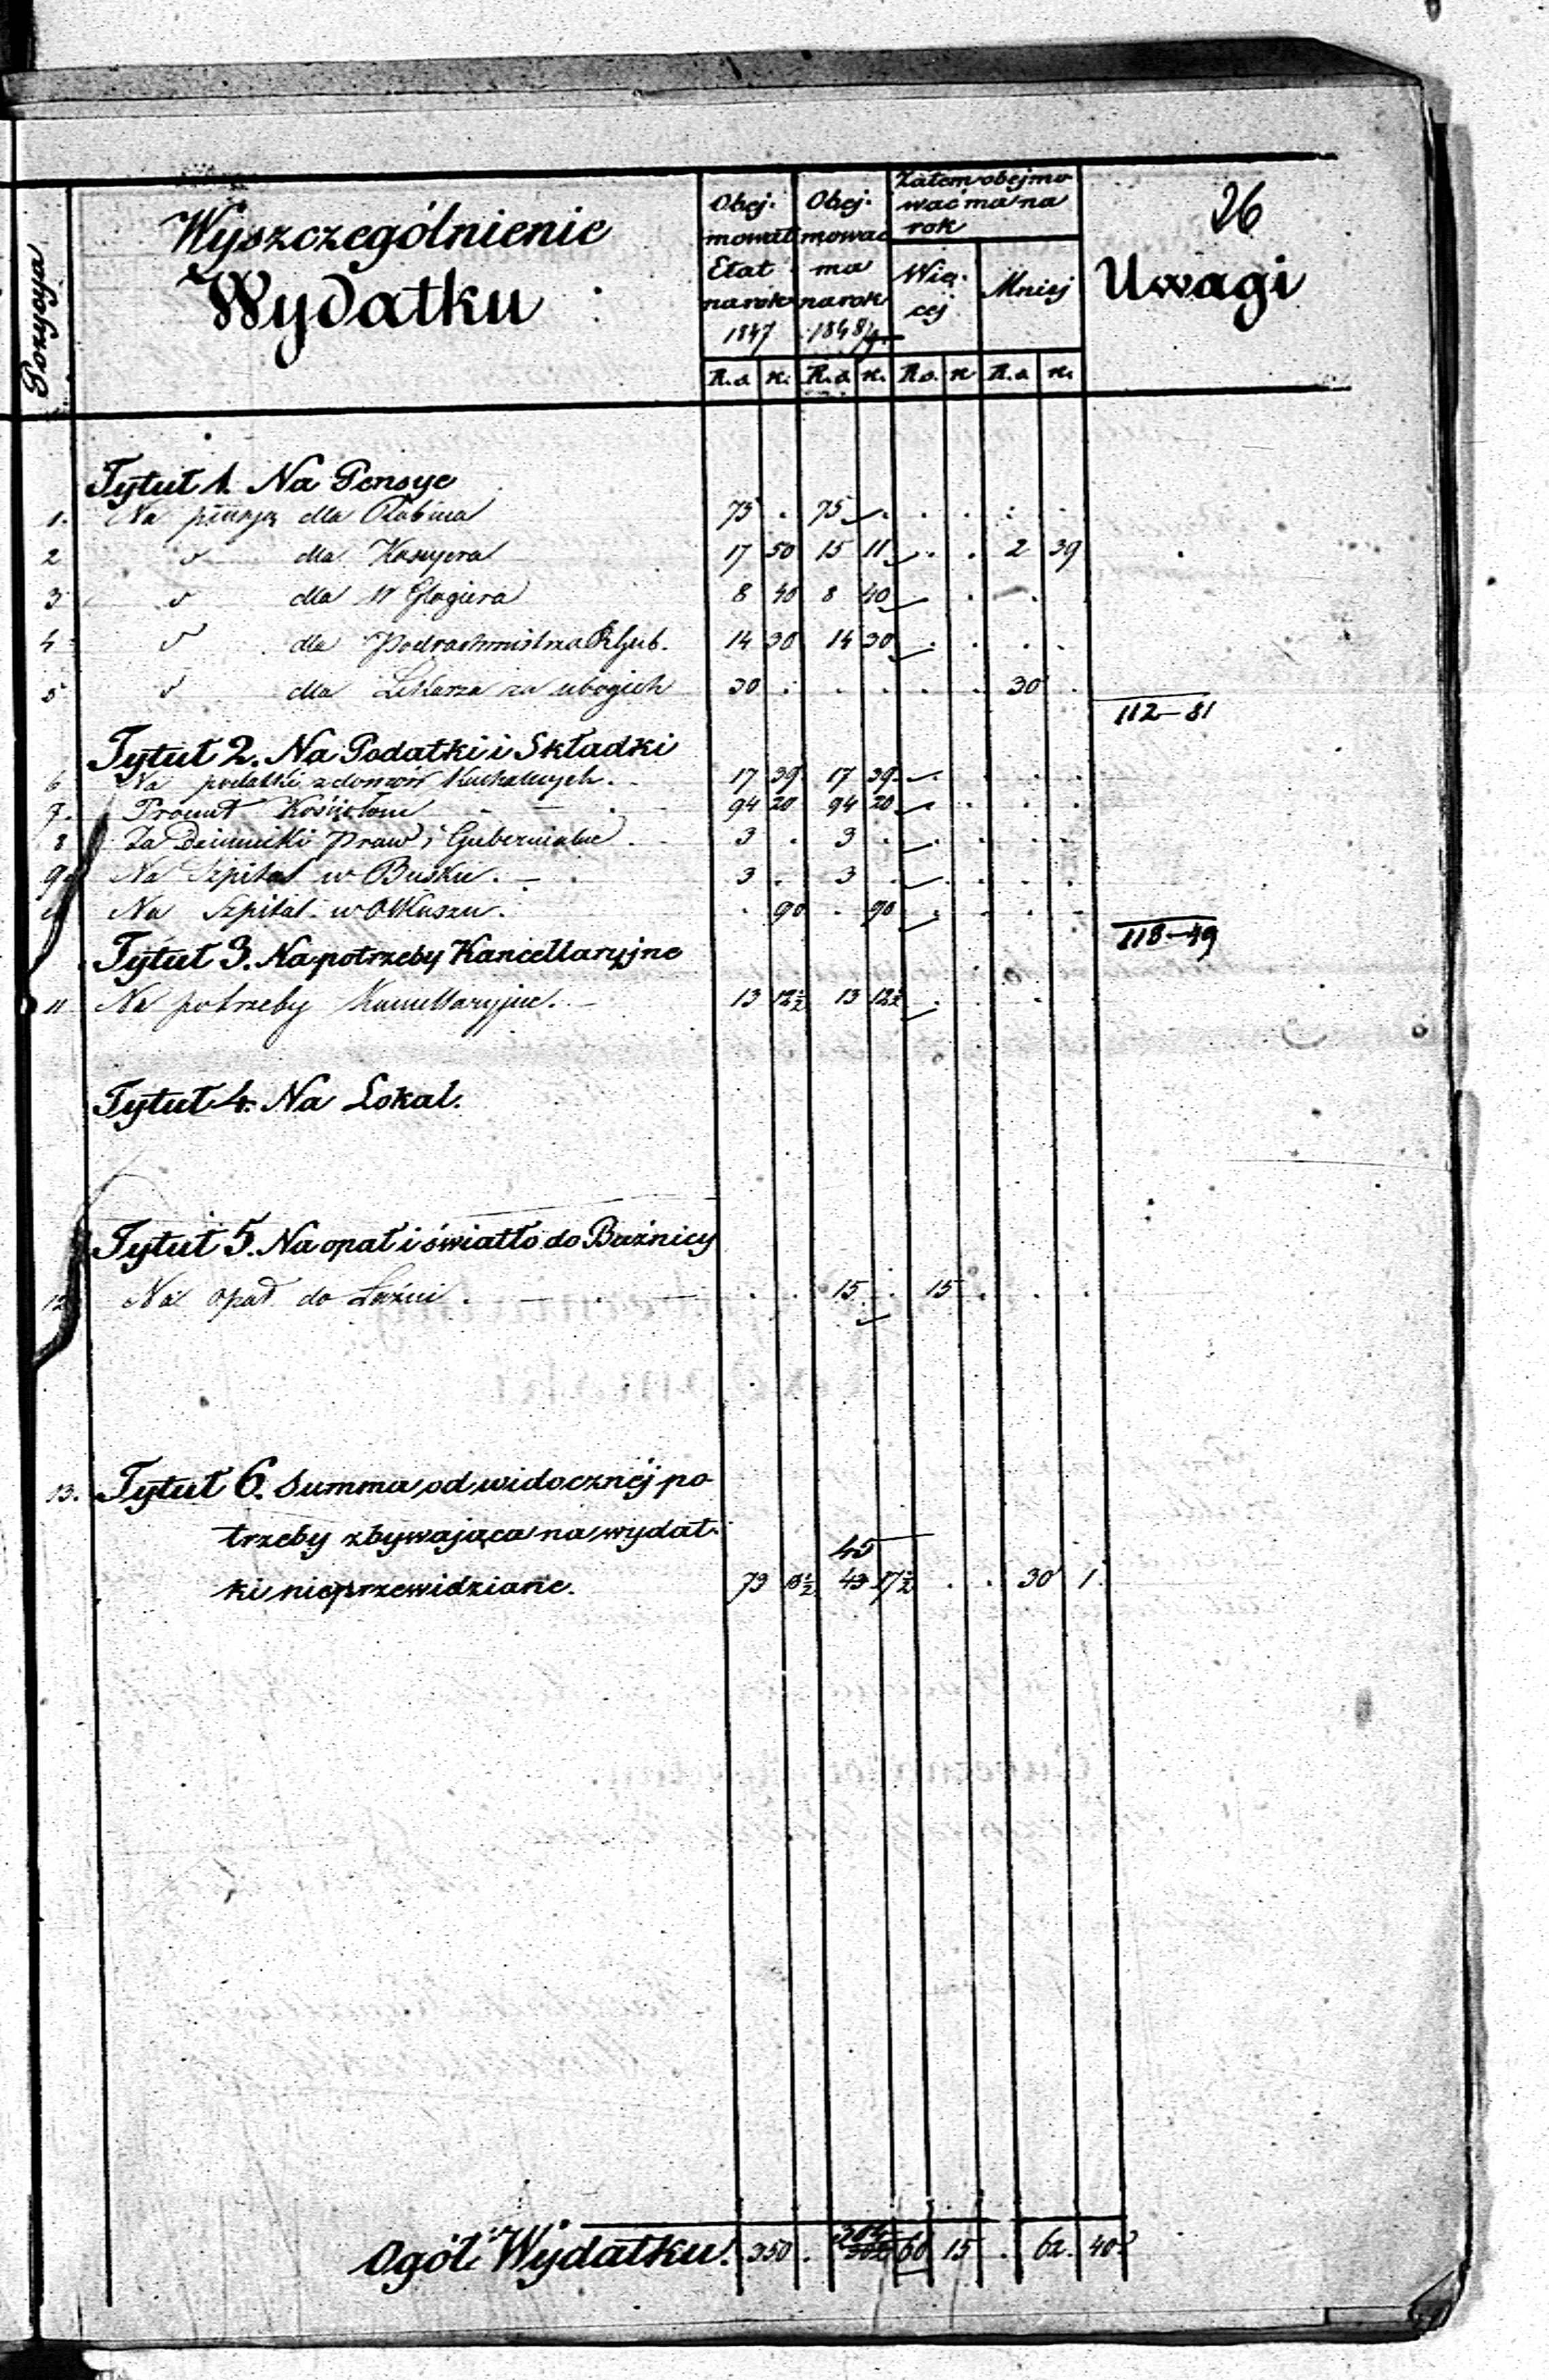 26
Pozycya
Wyszczególnienie
Wydatku
Obej-
mował
Etat
na rok
1847
Obej-
mować
ma
na rok
1848/9.
Zatem obejmo
wać ma na
rok
Wię-
cej
Mniej
Uwagi
R.s. k. R.s. k. R.s. k. R.s. k.
Tytuł 1. Na Pensye
1. Na pensyą dla Rabina 75 . 75 . . . . .
2 " dla Kassyera 17 50 15 11 . . 2 39
3 " dla 8 40 8 40 . . .
4 " dla Podrachmistrza R. Gub. 14 30 14 30 . . . .
5 " dla Lekarza za ubogich 30 . . . . . 30 .
112-81
Tytuł 2. Na Podatki i Składki
6 Na podatki z domów Kahalnych. 17 39 17 39 . . . .
7. Procent Kościołom 94 20 94 20 . . . .
8 Za Dzienniki Praw i Gubernialne 3 . 3 . . . . .
9 Na Szpital w Busku. 3 . 3 . . . . .
Na Szpital w Olkuszu. . 90 . 90 . . . .
118-49
Tytuł 3. Na potrzeby Kancellaryjne
11 Na potrzeby Kancellaryjne. 13 12½ 13 12½ . . .
Tytuł 4. Na Lokal.
Tytuł 5. Na opał i światło do Bużnicy
12 Na opał do Łaźni . . . 15 . 15 . . .
13. Tytuł 6. Summa od widocznéj po
trzeby zbywająca na wydat-
45
ki nieprzewidziane. 73 18½ 43 17½ . . 30 1.
Ogół Wydatku. 350 . 304 302 60 15 . 62. 40